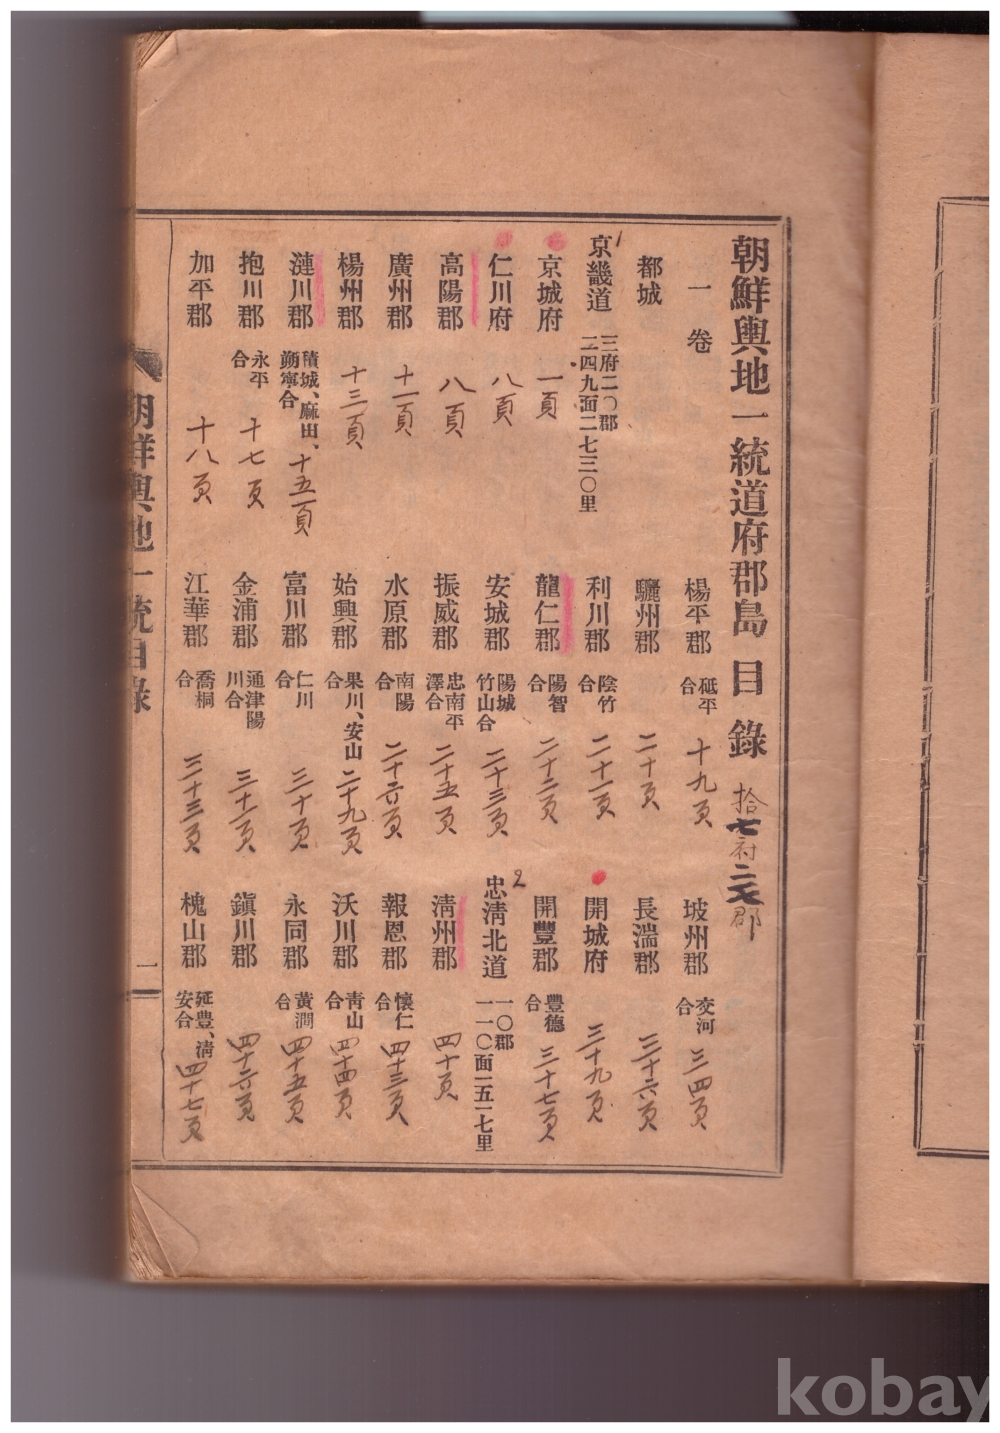 朝鮮輿地一統道府郡島目錄 拾七府二七郡
一卷
都城
京畿道 三府二〇郡 二四九面二七三〇里
1
京城府 一頁
仁川府 八頁
高陽郡 八頁
廣州郡 十一頁
楊州郡 十三頁
漣川郡 積城、麻田、朔寧合 十五頁
抱川郡 永平合 十七頁
加平郡 十八頁
楊平郡 砥平合 十九頁
驪州郡 二十頁
利川郡 陰竹合 二十一頁
龍仁郡 陽智合 二十二頁
安城郡 陽城竹山合 二十三頁
振威郡 忠南平澤合 二十五頁
水原郡 南陽合 二十六頁
始興郡 果川、安山合 二十九頁
富川郡 仁川合 三十頁
金浦郡 通津陽川合 三十一頁
江華郡 喬桐合 三十三頁
坡州郡 交河合 三四頁
長湍郡 三十六頁
開城府 三十九頁
開豐郡 豐德合 三十七頁
忠清北道 一〇郡 一一〇面一五一七里
2
清州郡 四十頁
報恩郡 懷仁合 四十三頁
沃川郡 青山合 四十四頁
永同郡 黃澗合 四十五頁
鎭川郡 四十六頁
槐山郡 延豊、清安合 四十七頁
朝鮮輿地一統目錄
一
kobay